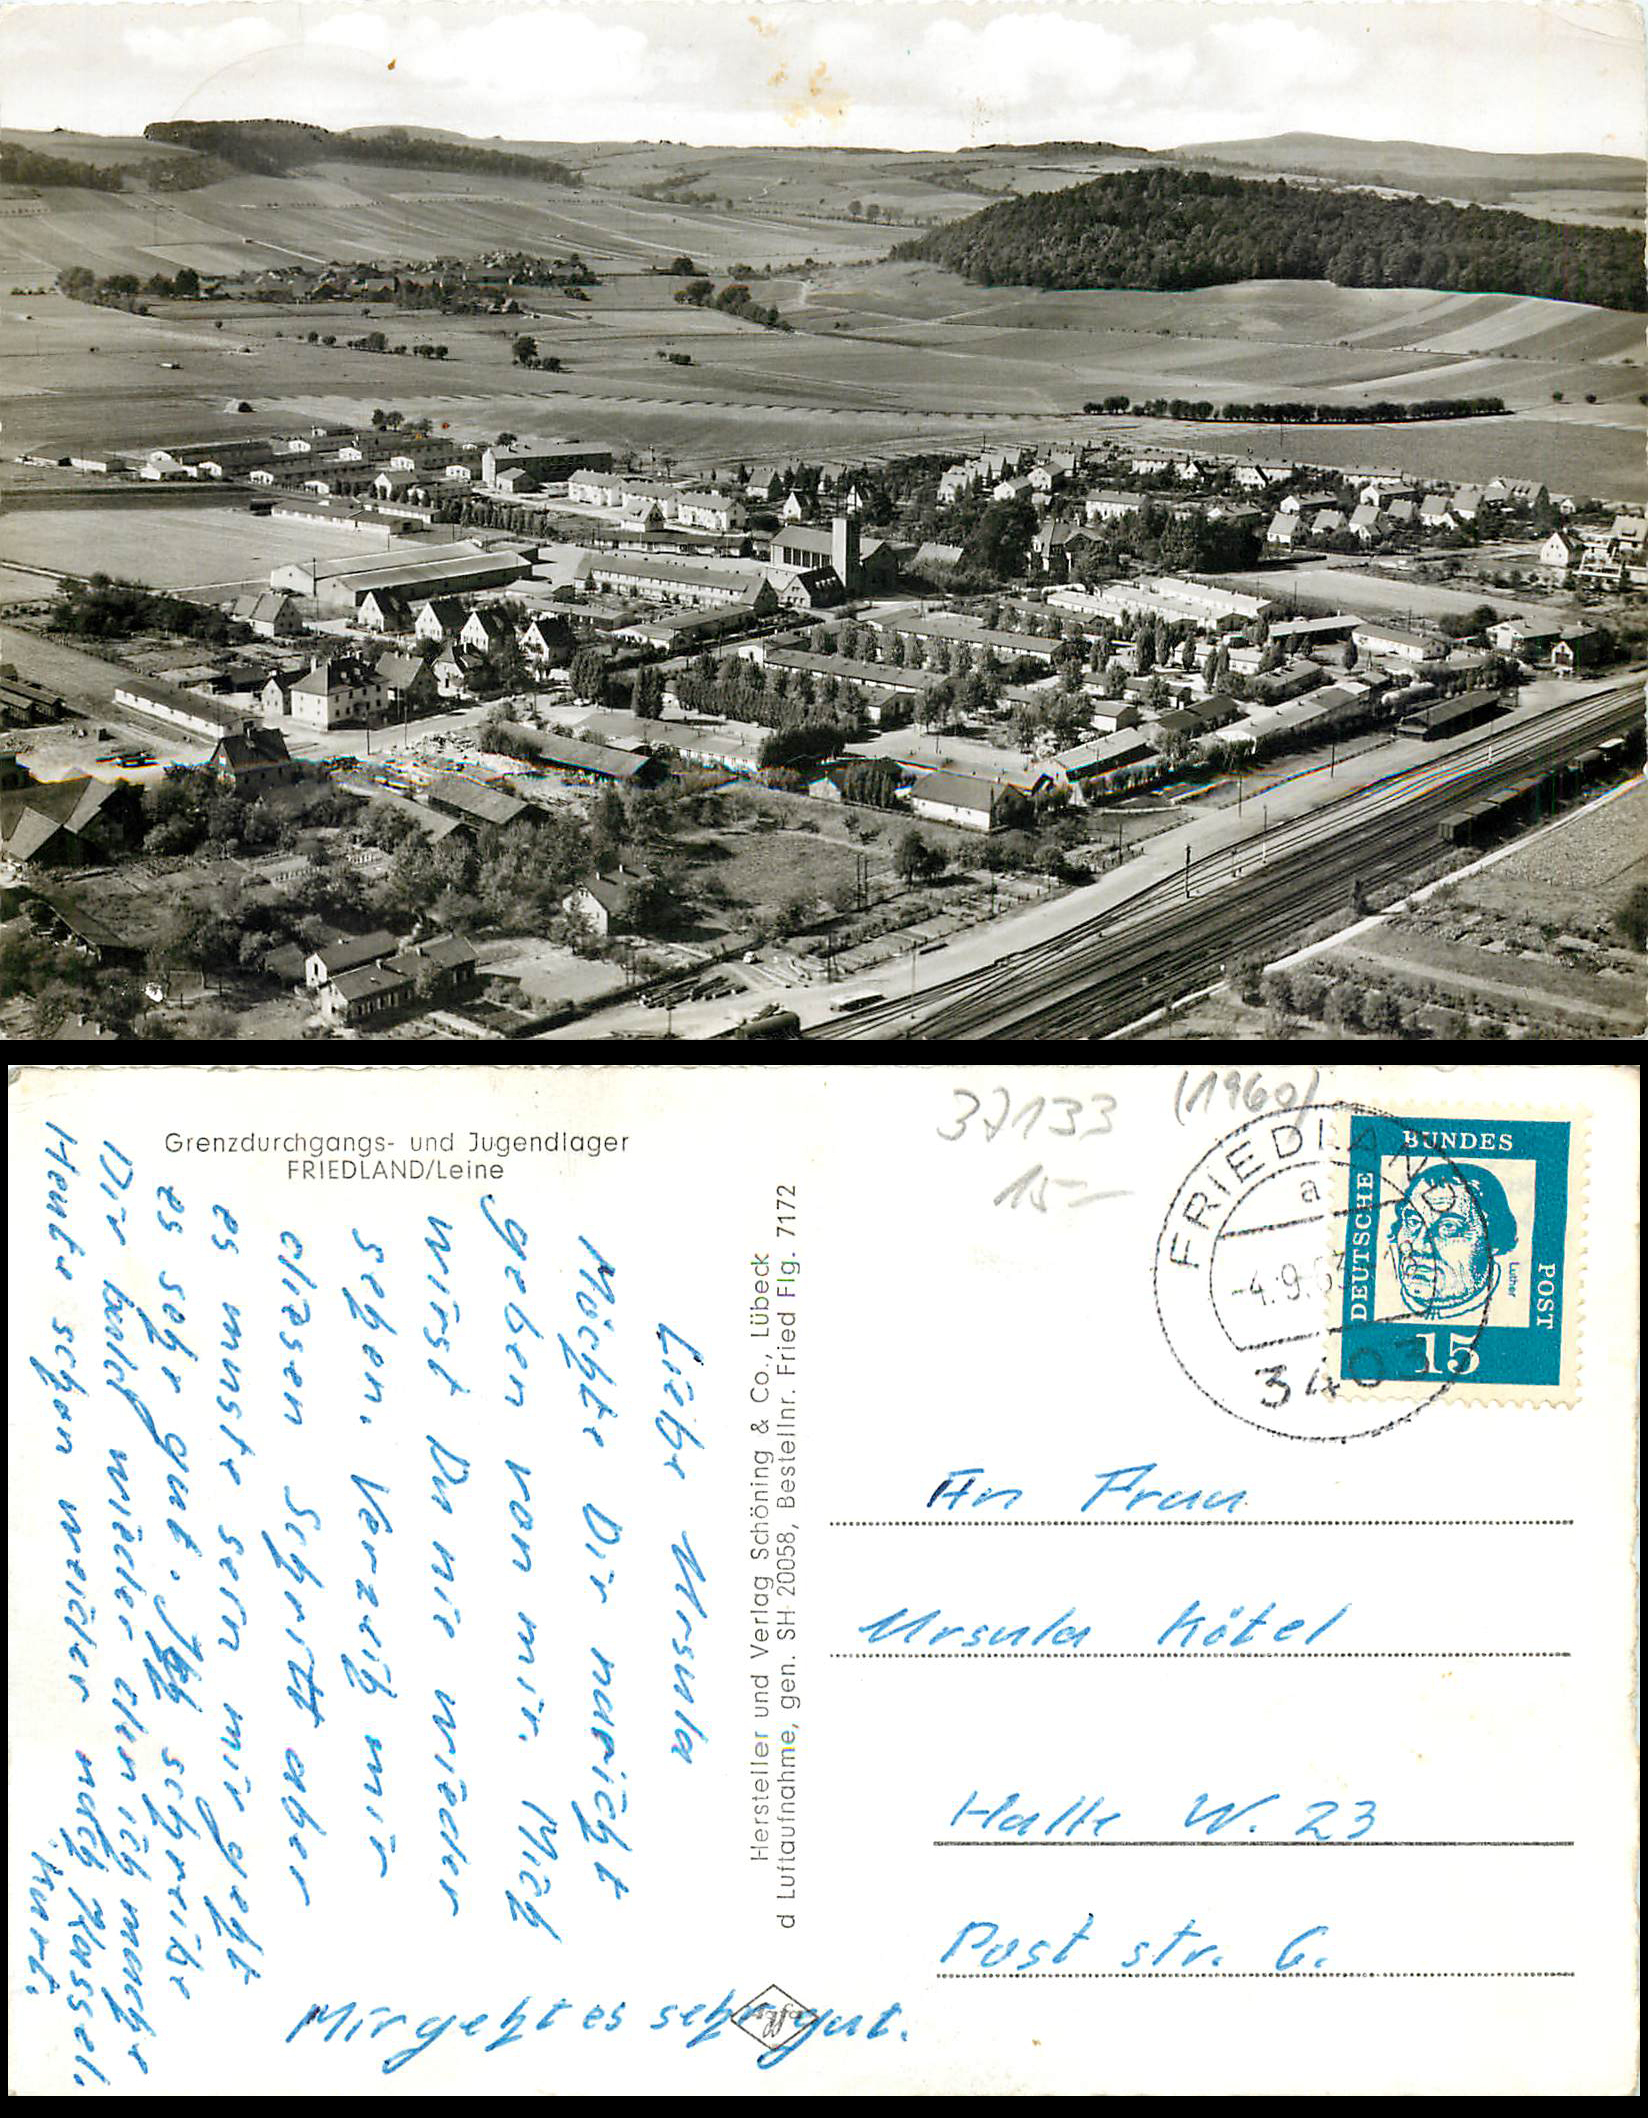 Grenzdurchgangs- und Jugendlager
FRIEDLAND/Leine
37133
(1960)
15-
FRIEDLAND
a
-4.9.63
3403
DEUTSCHE
BUNDES
POST
Luther
15
Liebe Ursula
Möchte Dir naricht
geben von mir. Mich
wirst Du nie wieder
sehen. Verzeih mir
diesen Schritt aber
es muste sein mir geht
es sehr gut. Ich schreibe
Dir bald wieder den ich mache
Heute schon weider nach Kassel.
Kurt.
Mir geht es sehr gut.
Agfa
Hersteller und Verlag Schöning & Co., Lübeck
d Luftaufnahme, gen. SH 20058, Bestellnr. Fried Flg. 7172
An Frau
Ursula Kötel
Halle W. 23
Post str. 6.